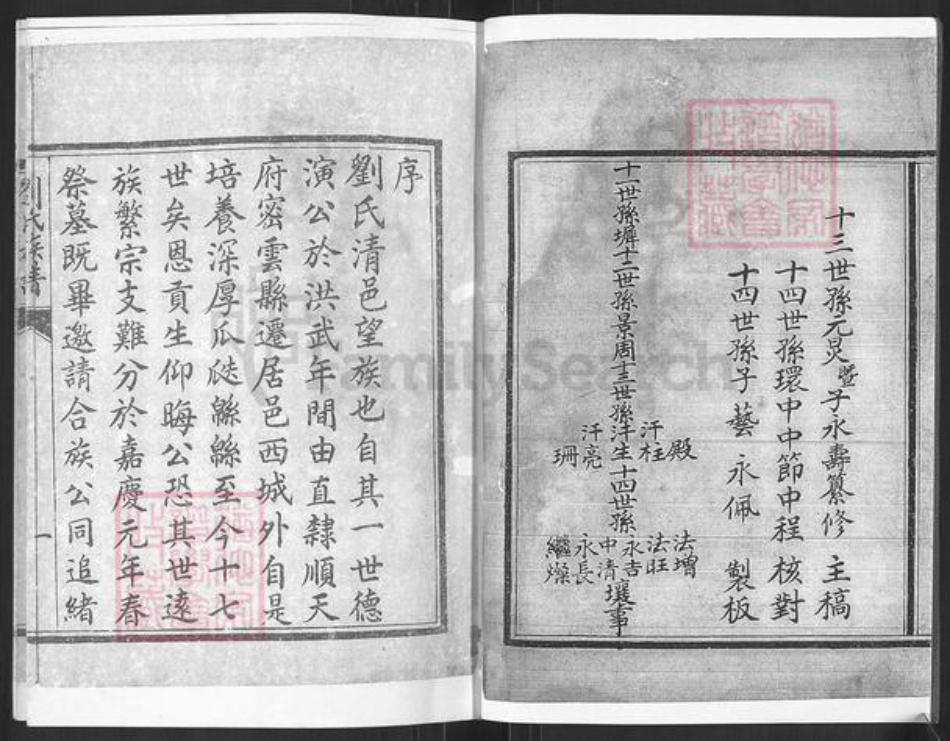 十三世孫元炅暨子永壽纂修 主稿
十四世孫環中中節中程 核對
十四世孫子藝 永佩 製板
十一世孫墀十二世孫景周十三世孫
殿
汗柱
汗生
汗亮
珊
十四世孫
法增
法旺
永吉
中清
永長
繼燦
襄事
序
劉氏清邑望族也自其一世德
演公於洪武年間由直隸順天
府密雲縣遷居邑西城外自是
培養深厚瓜瓞緜緜至今十七
世矣恩貢生仰晦公恐其世遠
族繁宗支難分於嘉慶元年春
祭墓既畢邀請合族公同追緒
劉氏族譜
一
FamilySearch